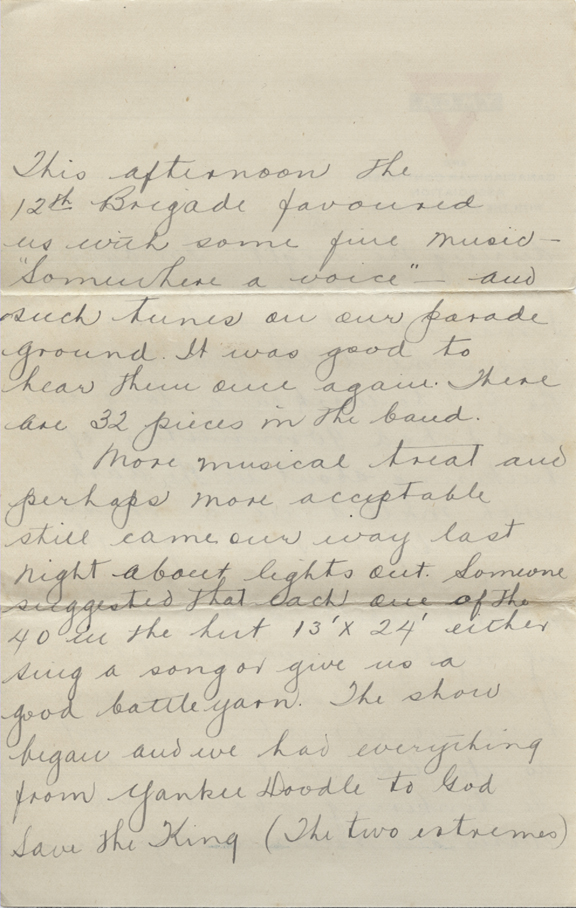 This afternoon the
12th Brigade favoured
us with some fine music –
"Somewhere a voice" – and
such tunes on our parade
ground. It was good to
hear them once again. There
are 32 pieces in the band.
More musical treat and
perhaps more acceptable
still came our way last
night about lights out. Someone
suggested that each one of the
40 in the hut 13' X 24' either
sing a song or give us a
good battle yarn. The show
began and we had everything
from Yankee Doodle to God
Save the King (The two extremes)